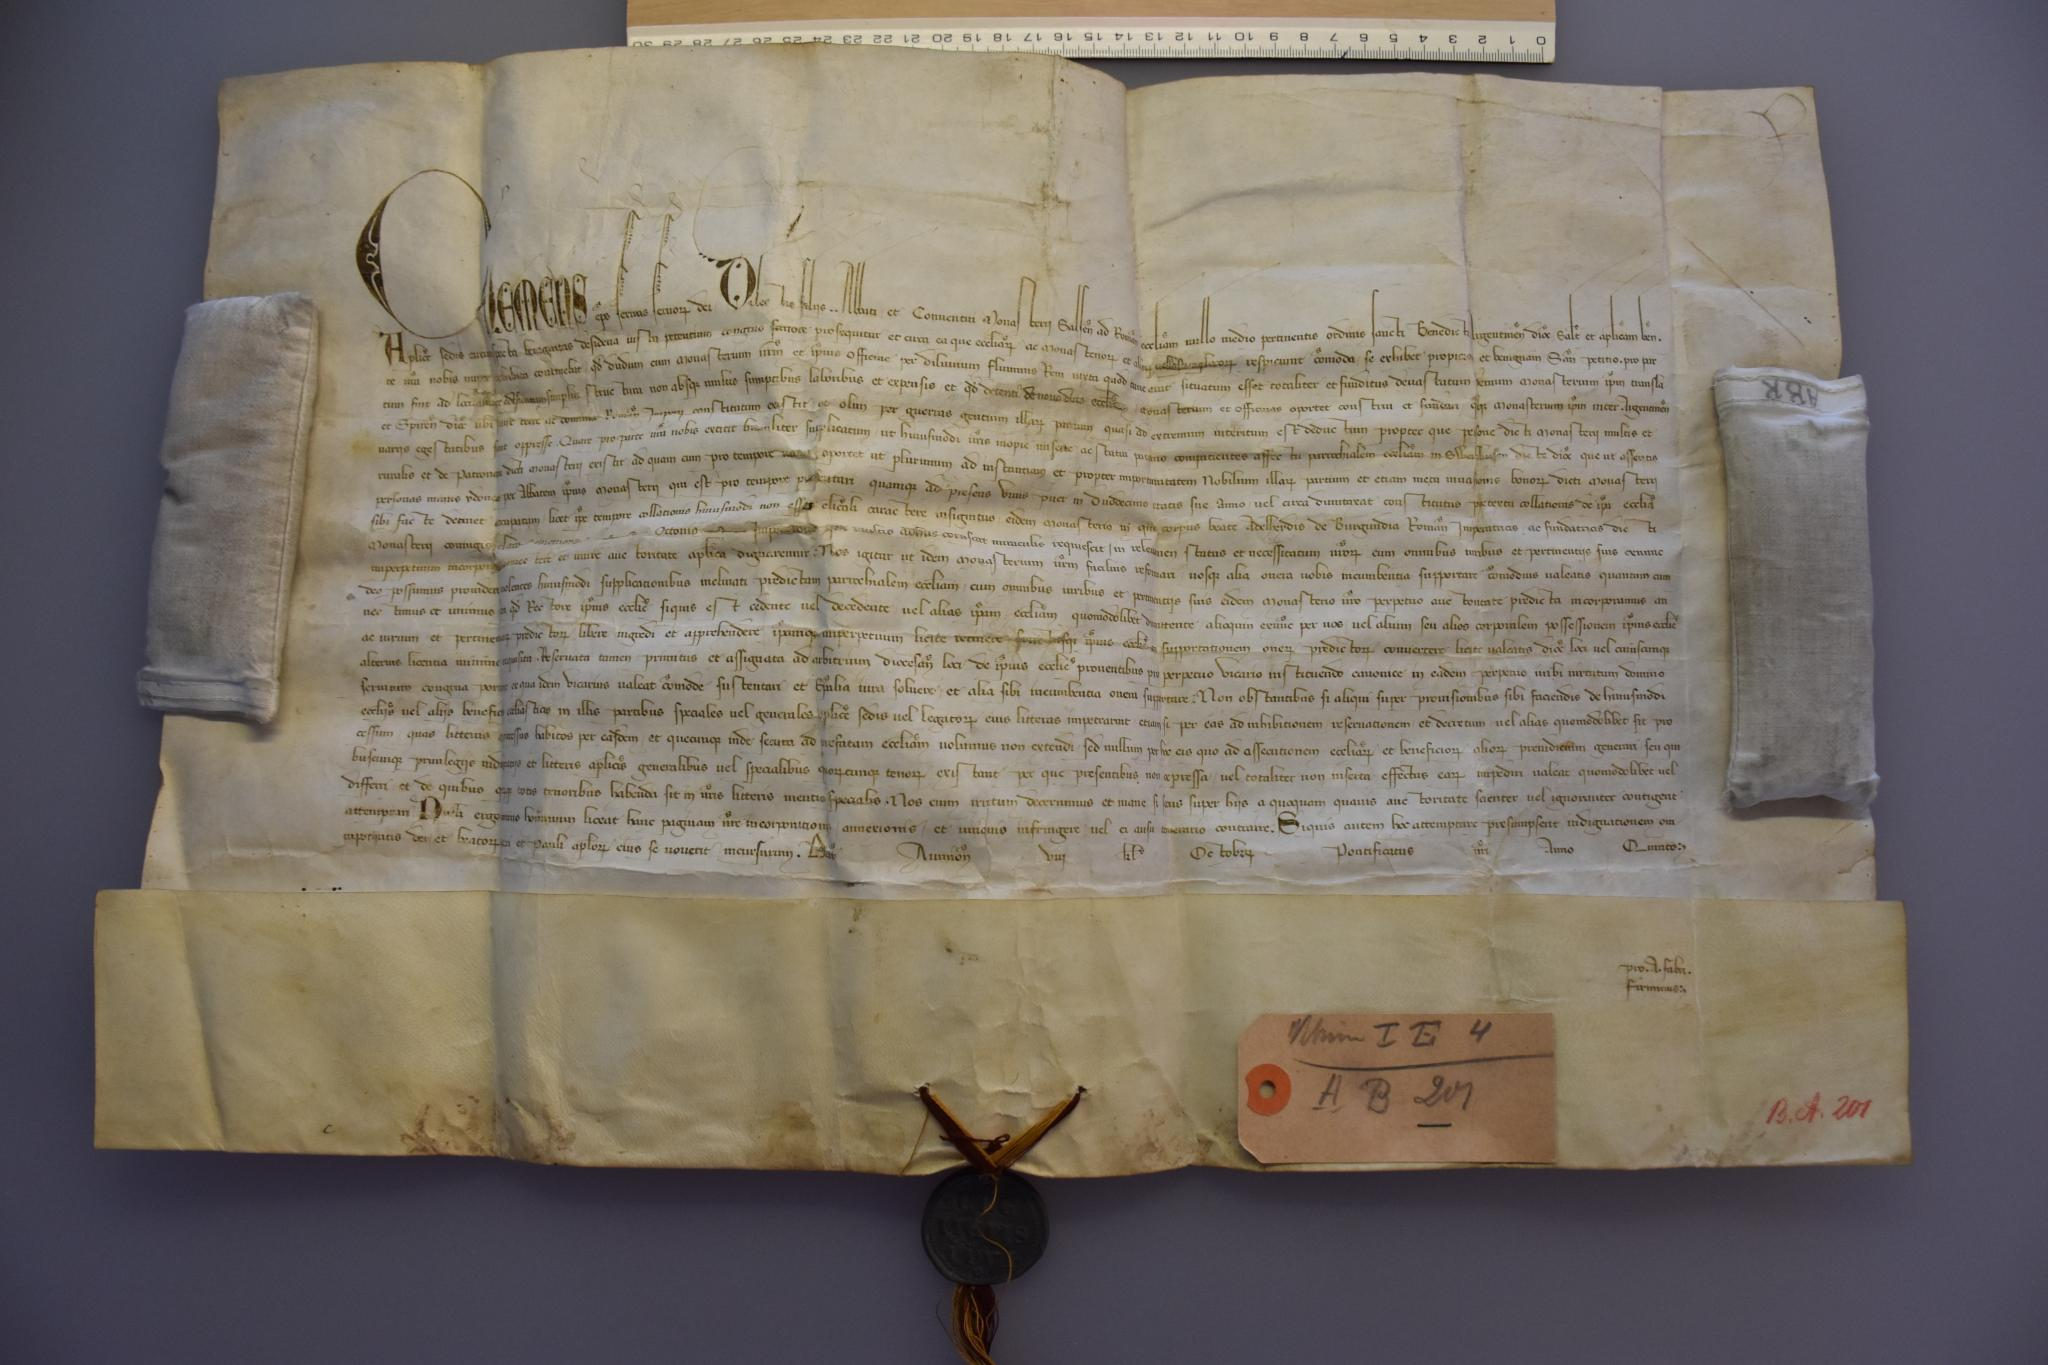 Clemens ep̄s seruus seruoꝝ dei Dilectis filijs .. Abbati et Conuentui Monasterij Salseñ ad Romañ eccliam nullo medio pertinentis ordinis sancti Benedicti Argentineñ dioc̄ Salt̄ et aplicam beñ.
Aplice sedis circumspecta benignitas desideria iusta petentium congruo fauore prosequitur et circa ea que eccliaꝝ ac Monasterioꝝ et respiciunt cōmoda se exhibet propiciam et benignam Sañ petitio pro par
te vr̄a nobis nuper exhibita continebat qđ dudum cum Monasterium vr̄m et ip̄ius Officine per diluuium fluminis Reni iuxta quod tunc erat situatum esset totaliter et funditus deuastatum Monasterium ip̄m transla
tum fuit ad structura non absqꝫ multis sumptibus laboribus et expensis et qđ de nouo Monasterium et officinas oportet construi et Monasterium ip̄m inter Argentineñ
et Spireñ dioc̄ ubi Romañ Imperij constitutum existit et olim per guerras gentium illaꝝ partium quasi ad extremum interitum est deductum propter que persone dicti Monasterij multis et
varijs egestatibus sunt oppresse. Quare pro parte vr̄a nobis extitit humiliter supplicatum ut huiusmodi vr̄is inopie miserie ac statui paterno compatientes affectu parrochialem eccliam in dicte dioc̄ que ut asseritis
ruralis et de Patronatu dicti Monasterij existit ad quam cum pro tempore vacat oportet ut plurimum ad instantiam et propter importunitatem Nobilium illaꝝ partium et etiam metu inuasionis bonoꝝ dicti Monasterij
personas minus ydoneas per Abbatem ip̄ius Monasterij qui est pro tempore presentari quamqꝫ ad presens vnus puer in duodecimo etatis sue Anno vel circa constitutus pretextu collationis de ip̄a ecclia
sibi facte detinet occupatam licet ip̄e tempore collationis huiusmodi non esset clicali caractere insignitus eidem Monasterio in quo corpus beate Adelheidis de Burgundia Romañ Imperatricis ac fundatricis dicti
Monasterij coniugis Ottonis Imperatoris coruscat miraculis requiescit in releuamen status et necessitatum vr̄oꝝ cum omnibus iuribus et pertinentijs suis
imperpetuum incorporare et vnire auctoritate aplica dignaremur. Nos igitur ut idem Monasterium vr̄m facilius reformari vosqꝫ alia onera vobis incumbentia supportare cōmodius valeatis quantum cum
deo possumus prouidere volentes huiusmodi supplicationibus inclinati predictam parrochialem eccliam cum omnibus iuribus et pertinentijs suis eidem Monasterio vr̄o perpetuo auctoritate predicta incorporamus an
nectimus et vnimus ita qđ Rectore ip̄ius ecclie siquis est cedente vel decedente vel alias ip̄am eccliam quomodolibet dimittente aliquam per vos vel alium seu alios corporalem possessionem ip̄ius ecclie
ac iurium et pertinentiaꝝ predictoꝝ libere ingredi et apprehendere ip̄amqꝫ imperpetuum licite retinere ip̄ius ecclie in supportationem oneꝝ predictoꝝ conuertere licite valeatis dioc̄ loci vel cuiuscumqꝫ
alterius licentia minime requisita. Reseruata tamen primitus et assignata ad arbitrium diocesañ loci de ip̄ius ecclie prouentibus pro perpetuo vicario instituendo canonice in eadem perpetuo inibi virtutum domino
seruituro congrua portione ex qua idem vicarius valeat cōmode sustentari et Epalia iura soluere et alia sibi incumbentia onera supportare. Non obstantibus si aliqui super prouisionibus sibi faciendis de huiusmodi
ecclijs vel alijs beneficijs ecclesiasticis in illis partibus speciales vel generales aplice sedis vel legatoꝝ eius litteras impetrarint etiam si per eas ad inhibitionem reseruationem et decretum vel alias quomodolibet sit pro
cessum quas litteras et processus habitos per easdem et quecumqꝫ inde secuta ad prefatam eccliam volumus non extendi sed nullum per hoc eis quo ad assecutionem eccliaꝝ et beneficioꝝ alioꝝ preiudicium generari seu qui
buscumqꝫ priuilegijs indulgentijs et litteris aplicis generalibus vel specialibus quoꝝcumqꝫ tenoꝝ existant per que presentibus non expressa vel totaliter non inserta effectus eaꝝ impediri valeat quomodolibet vel
differri et de quibus quoꝝqꝫ totis tenoribus habenda sit in vr̄is litteris mentio specialis. Nos enim irritum decernimus et inane si secus super hijs a quoquam quauis auctoritate scienter vel ignoranter contigerit
attemptari Nulli ergo omnino hominum liceat hanc paginam nr̄e incorporationis annexionis et vnionis infringere vel ei ausu temerario contraire. Siquis autem hoc attemptare presumpserit indignationem om
nipotentis dei et beatoꝝ Petri et Pauli aploꝝ eius se nouerit incursurum. Dat̄ Auinioñ viij kl̄ Octobꝝ Pontificatus nr̄i Anno Quinto
pro. A. fabri.
Firminus
Vitrine I E 4
A B 201
B. A. 201
ABR
0 1 2 3 4 5 6 7 8 9 10 11 12 13 14 15 16 17 18 19 20 21 22 23 24 25 26 27 28 29 30